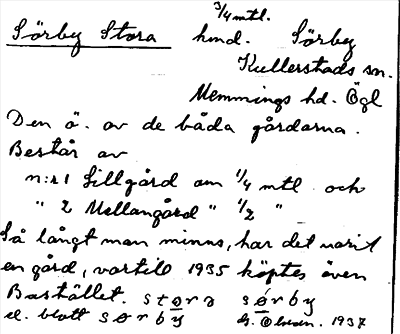 3/4 mtl.
Sörby Stora hmd. Sörby
Kullerstads sn.
Memmings hd. Ögl
Den ö. av de båda gårdarna.
Består av
n:r 1 Lillgård om 1/4 mtl och
" 2 Mellangård " 1/2 "
Så långt man minns, har det varit
en gård, vartill 1935 köptes även
Bastället. stora sørby
el. blott sørby G. Olson. 1937